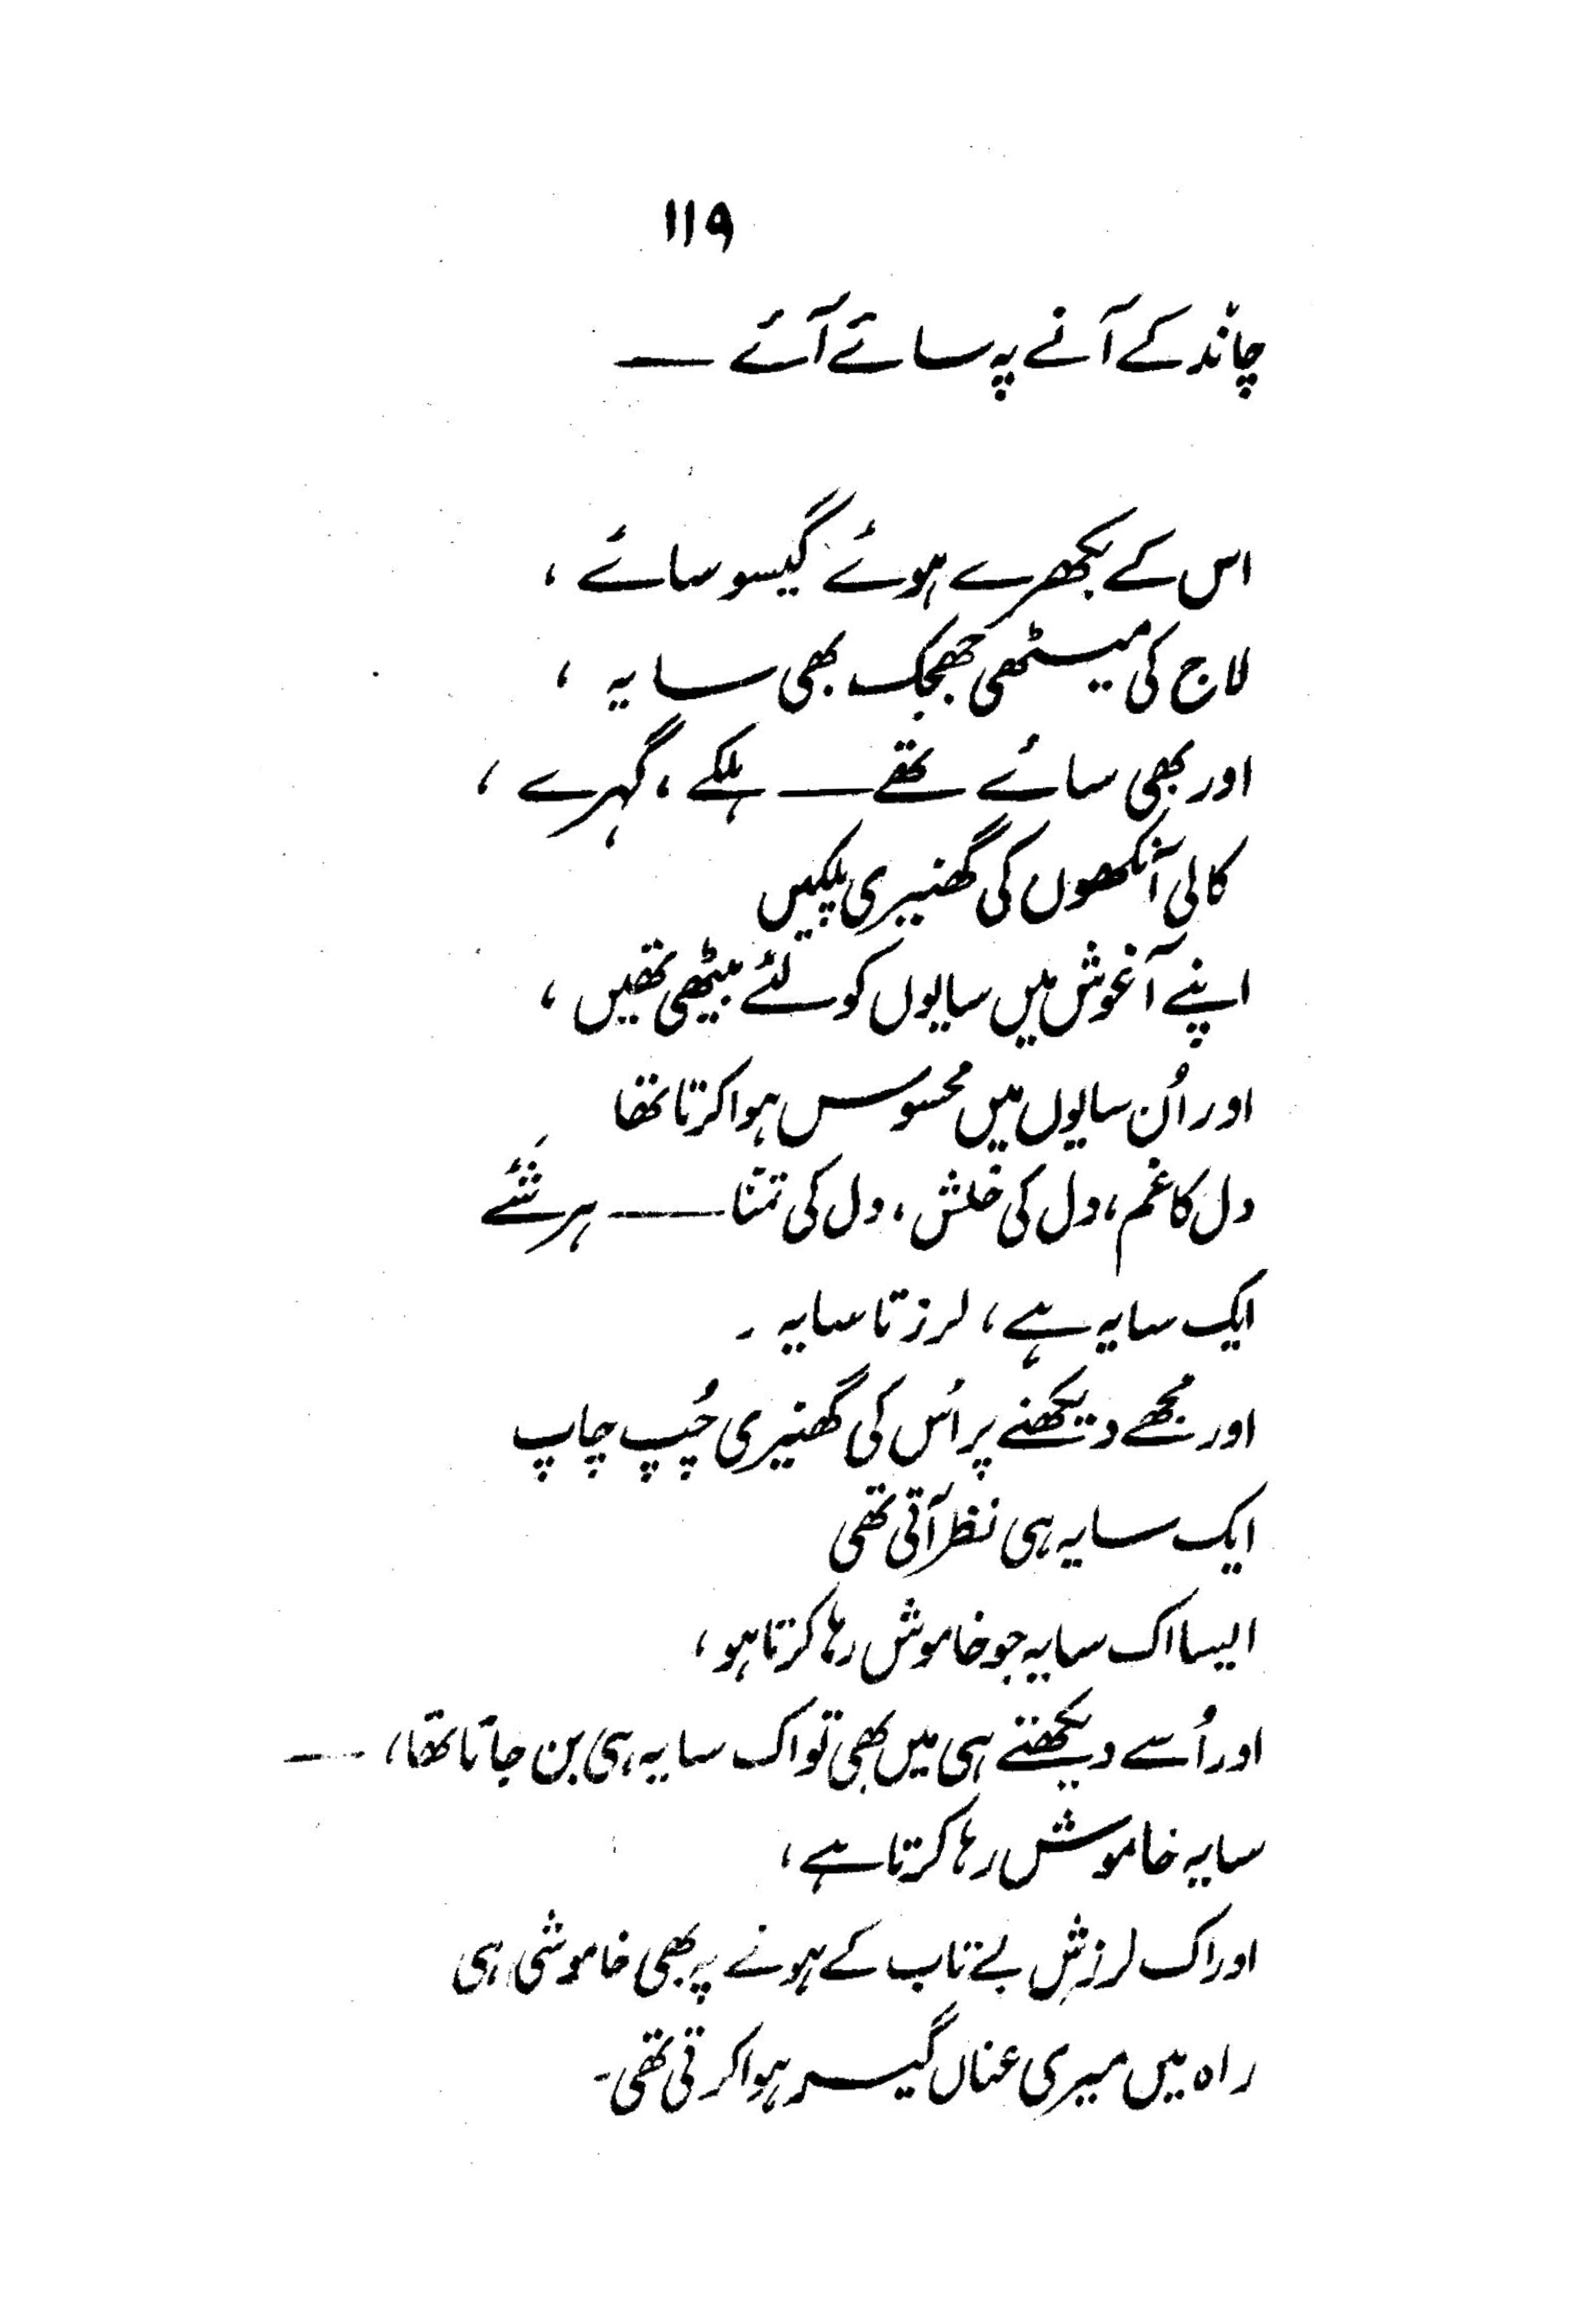 ۱۱۹
چاند کے آنے پہ سائے آئے ــــ
اس کے بکھرے ہوئے گیسو سائے ،
لاج کی میٹھی جھجک بھی سایہ ،
اور بھی سائے تھے ــــ ہلکے ، گہرے ،
کالی آنکھوں کی گھنیری پلکیں
اپنے آغوش میں سایوں کو لئے بیٹھی تھیں ،
اور اُن سایوں میں محسوس ہوا کرتا تھا
دل کا غم ، دل کی خلش ، دل کی تمنا ــــ ہر شَئے
ایک سایہ ہے ، لرزتا سایہ ۔
اور مجھے دیکھنے پر اُس کی گھنیری چُپ چاپ
ایک سایہ ہی نظر آتی تھی
ایسا اک سایہ جو خاموش رہا کرتا ہو ،
اور اُسے دیکھتے ہی میں بھی تو اک سایہ ہی بن جاتا تھا ، ــــ
سایہ خاموش رہا کرتا ہے ،
اور اک لرزشِ بے تاب کے ہونے پہ بھی خاموشی ہی
راہ میں میری عناں گیر ہوا کرتی تھی ۔